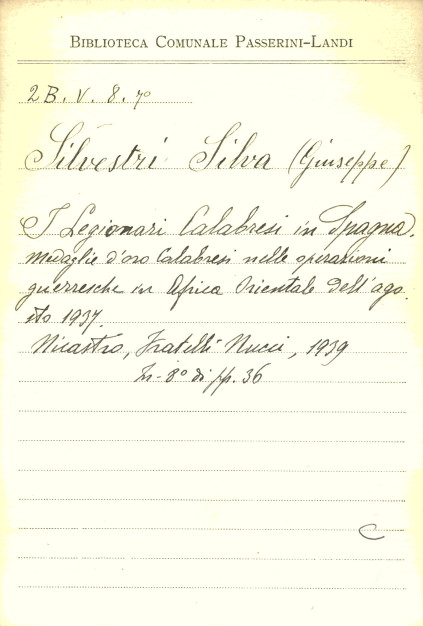 BIBLIOTECA COMUNALE PASSERINI-LANDI
2B. V. 8. 7º
Silvestri Silva (Giuseppe)
I Legionari Calabresi in Spagna.
Medaglie d'oro Calabresi nelle operazioni
guerresche in Africa Orientale dell'ago-
sto 1937.
Nicastro, Fratelli Nucci, 1939
In-8º di pp. 36
C